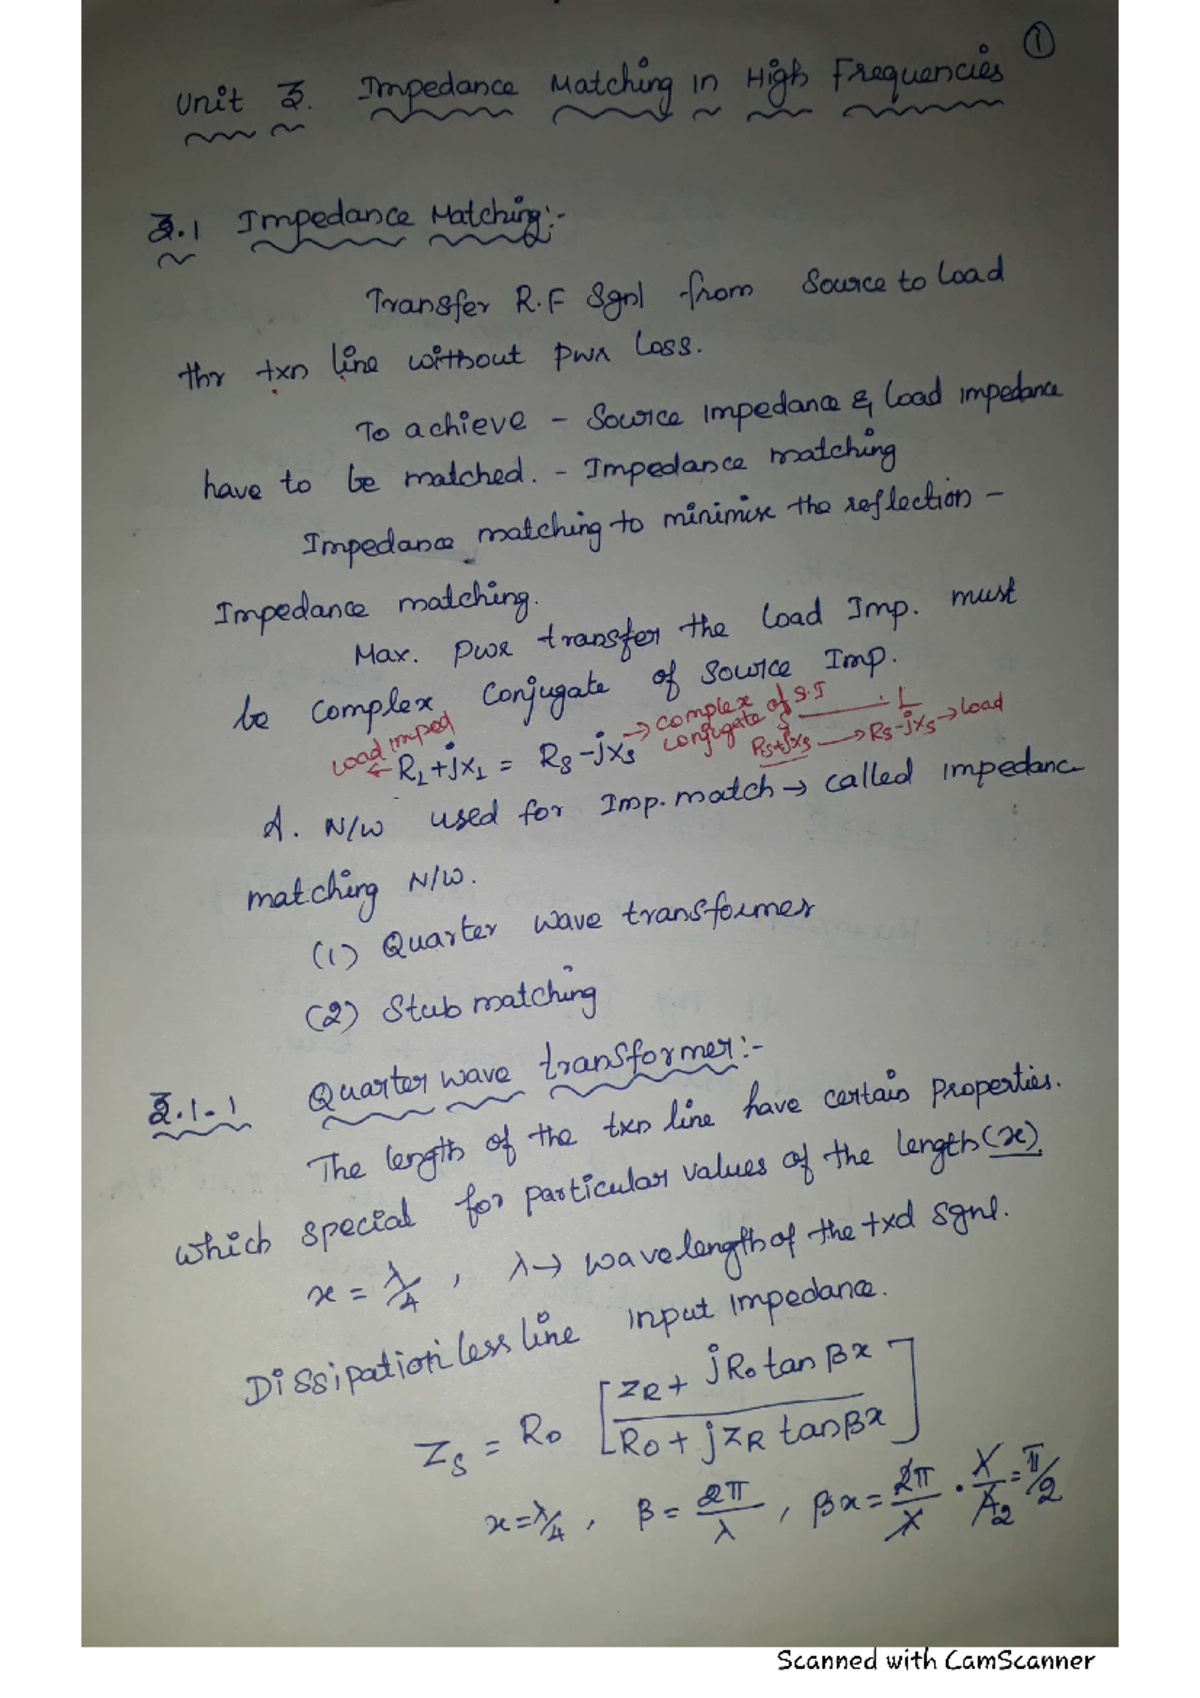 ①
Unit 3. Impedance Matching in High Frequencies
3.1 Impedance Matching:-
Transfer R.F Sgnl from Source to Load
thr txn line without pwr Loss.
To achieve - Source impedance & Load impedance
have to be matched. - Impedance matching
Impedance matching to minimise the reflection -
Impedance matching.
Max. pwr transfer the Load Imp. must
be complex conjugate of source Imp.
Load imped → complex conjugate of S.I
S ——— L
R_L + jX_L = R_S - jX_S
R_S + jX_S → R_S - jX_S → Load
A. N/W used for Imp. match → called impedanc
matching N/W.
(1) Quarter wave transformer
(2) Stub matching
3.1-1 Quarter wave transformer:-
The length of the txn line have certain properties.
which special for particular values of the length (x).
x = λ/4, λ → wavelength of the txd sgnl.
Dissipationless line input impedance.
Z_S = R_0 [Z_R + jR_0 tan βx / R_0 + jZ_R tan βx]
x = λ/4, β = 2π/λ, βx = 2π/λ · λ/4 2 = π/2
Scanned with CamScanner